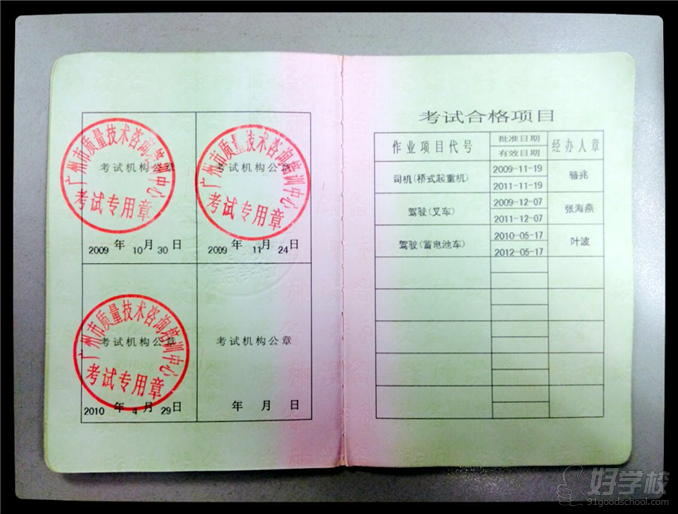 广州市质量技术咨询培训中心
考试机构公章
考试专用章
2009 年 10 月 30 日
广州市质量技术咨询培训中心
考试机构公章
考试专用章
2009 年 11 月 24 日
广州市质量技术咨询培训中心
考试机构公章
考试专用章
2010 年 4 月 29 日
考试机构公章
年 月 日
考试合格项目
作业项目代号 批准日期 有效日期 经办人章
司机(桥式起重机) 2009-11-19 2011-11-19 骆兆
驾驶(叉车) 2009-12-07 2011-12-07 张海燕
驾驶(蓄电池车) 2010-05-17 2012-05-17 叶波
好学校
91goodschool.com